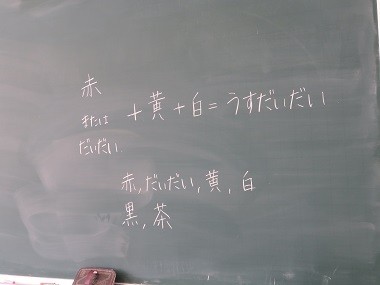 赤
または
だいだい
+黄+白=うすだいだい
赤,だいだい,黄,白
黒,茶